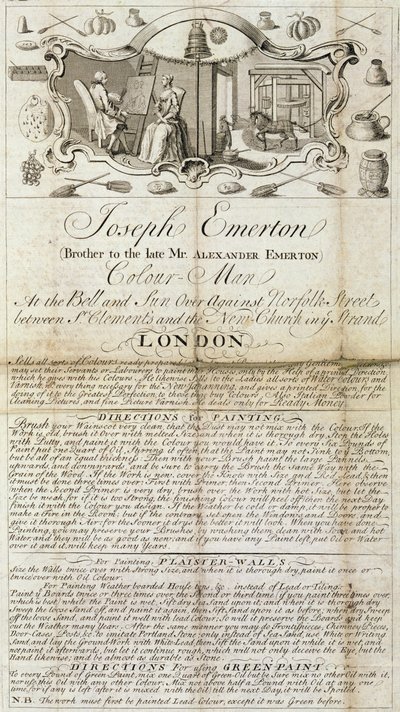 Joseph Emerton
(Brother to the late Mr. ALEXANDER EMERTON)
Colour-Man
At the Bell and Sun Over Against Norfolk Street
between St. Clements and the New Church in ye Strand
LONDON
Sells all sorts of Colours ready prepared
may set their Servants or Labourers to paint their Houses, only by the Help of a printed Direction
which he gives with his Colours. He likewise Sells to the Ladies all sorts of Water Colours and
Varnish, & every thing necessary for the New Japanning, and gives a printed Direction, for the
doing of it to the Greatest Perfection, to those they buy Colours. Also Italian Powder for
Cleaning Pictures, and fine Picture Varnish. He deals only for Ready Money.
DIRECTIONS for PAINTING.
Brush your Wainscot very clean, that the Dust may not mix with the Colour. If the
Work is old, brush it Over with melted Size, and when it is thorough dry, Stop the Holes
with Putty, and paint it with the Colour you would have it. To every Six Pounds of
Paint put one Quart of Oil, Stirring it often, that the Paint may not Sink to ye Bottom,
but be all of an equal thickness. Then with your Brush paint the large Pannels
upwards and downwards, and be sure to carry the Brush the Same Way with the
Grain of the Wood. If the Work is new, cover the Knots with Size and Red Lead, then
it must be done three times over: First with Primer, then Second Primer. Here observe
when the Second Primer is very dry, brush over the Work with hot Size, but let the
Size be weak, for if it is too Strong the finishing Colour will peel off; then the next Day
finish it with the Colour you design. If the Weather be cold or damp, it will be proper to
make a Fire in the Room; but if the contrary, set open the Windows and Doors, and
give it thorough Air, for the Sooner it drys the better it will look. When you have done
Painting, you may preserve your Brushes by washing them clean with Soap and hot
Water, and they will be as good as new: and if you have any Paint left, put Oil or Water
over it and it will keep many Years.
For Painting PLAISTER-WALLS
Size the Walls twice over with Strong Size, and when it is thorough dry, paint it once or
twice over with Oil Colour.
For Painting Weather boarded House tops &c. instead of Lead or Tiling.
Paint ye Boards twice or three times over; the Second or third time (if you paint three times over,
which is best) while the Paint is wet, Sift dry Sea Sand upon it; and when it is thorough dry,
Sweep the loose Sand off, and paint it again, then Sift Sand upon it as before; when dry Sweep
off the loose Sand, and paint it well with Lead Colour: So will it preserve the Boards and keep
out the Weather many Years. After the same manner you may do Frontispieces, Chimney Pieces,
Door Cases, Posts &c. to imitate Portland Stone; only instead of Sea Sand, use White or Writing
Sand, and lay the Ground Work with White Lead, then Sift the Sand upon it while it is wet, and
not paint it afterwards, but let it continue rough, which will not only deceive the Eye, but the
Hand likewise, and be almost as durable as Stone.
DIRECTIONS for using GREEN PAINT
To every Pound of Green Paint, mix one Quart of Green Oil, but be Sure mix no other Oil with it,
nor use this Oil with any other Colour. Mix not above half a Pound with Oil at any one
time, for if any is left after it is mixed with the Oil till the next Day, it will be Spoiled.
N.B. The work must first be painted Lead-Colour, except it was Green before.